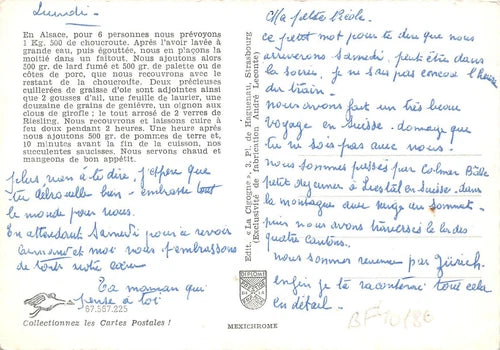 Lundi -
En Alsace, pour 6 personnes nous prévoyons
1 Kg. 500 de choucroute. Après l'avoir lavée à
grande eau, puis égouttée, nous en plaçons la
moitié dans un faitout. Nous ajoutons alors
500 gr. de lard fumé et 500 gr. de palette ou de
côtes de porc, que nous recouvrons avec le
restant de la choucroute. Deux précieuses
cuillerées de graisse d'oie sont adjointes ainsi
que 2 gousses d'ail, une feuille de laurier, une
douzaine de grains de genièvre, un oignon aux
clous de girofle ; le tout arrosé de 2 verres de
Riesling. Nous recouvrons et laissons cuire à
feu doux pendant 2 heures. Une heure après
nous ajoutons 500 gr. de pommes de terre et,
10 minutes avant la fin de la cuisson, nos
succulentes saucisses. Nous servons chaud et
mangeons de bon appétit.
plus rien à te dire, j'espère que
tu débrouille bien - embrasse tout
le monde pour nous.
En attendant Samedi pour se revoir
et moi nous t'embrassons
de tout notre cœur
Ta maman qui
pense à toi
67.567.225
Collectionnez les Cartes Postales !
Edit. « La Cigogne », 3, Pl. de Haguenau, Strasbourg
(Exclusivité de fabrication André Leconte)
DIPLOME
MEXICHROME
Ma petite Nicole -
ce petit mot pour te dire que nous
arriverons Samedi, peut être dans
la soirée, je ne sais pas encore l'heure
du train -
nous avons fait un très beau
voyage en Suisse - domage que
tu ne sois pas avec nous -
nous sommes passés par Colmar Bâle
petit déjeuner à Liestal en Suisse - dans
la montagne avec neige au sommet -
puis nous avons traversés le lac des
quatre cantons.
nous sommes revenue par Zürich -
enfin je te raconterai tout cela
en détail -
BF 10/86